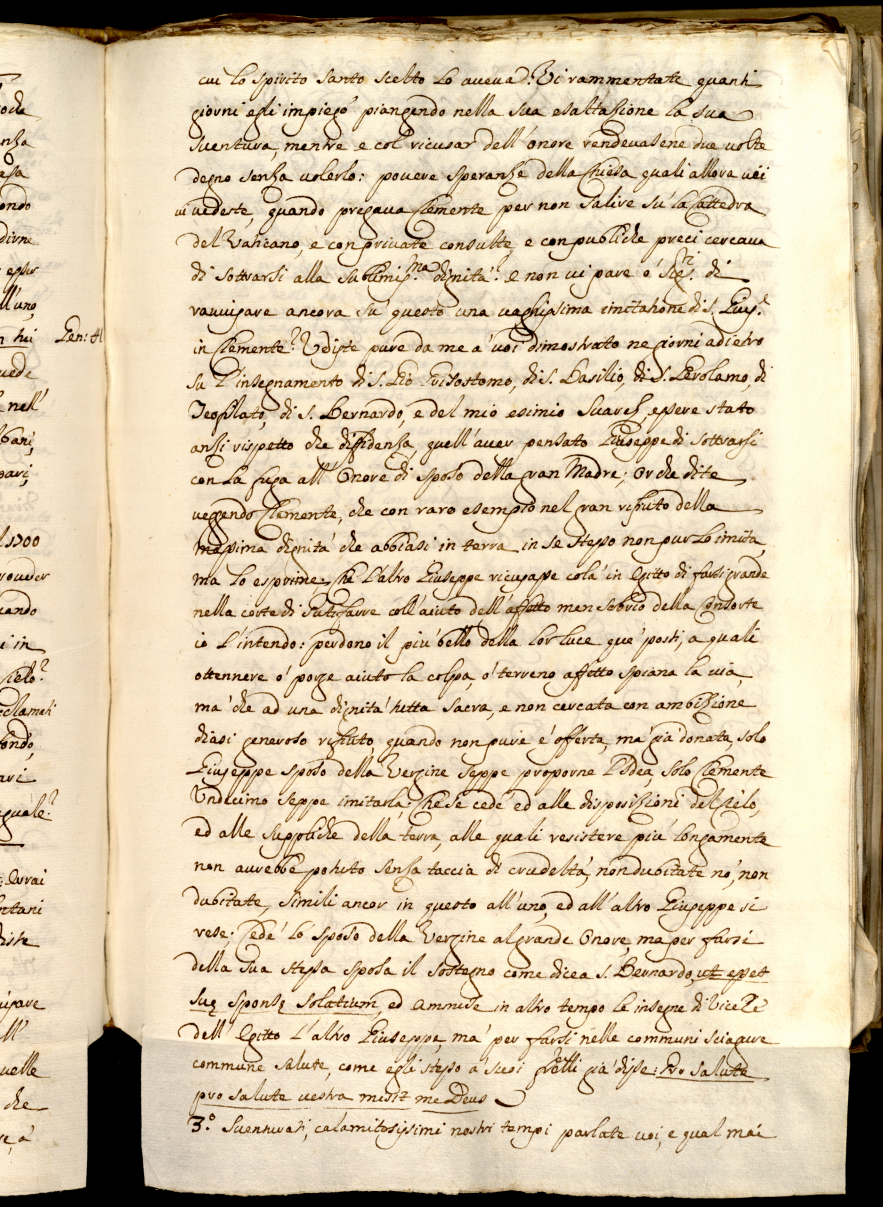 cui lo Spirito Santo scelto lo aueua? Vi rammentate quanti
giorni egli impiegò piangendo nella sua esaltazione la sua
suentura, mentre e col ricusar dell'onore rendeuasene due uolte
degno senza uolerlo: pouere speranze della Chiesa quali allora uoi
ui uedeste, quando pregaua Clemente per non salire sù la Cattedra
del Vaticano, e con priuate consulte, e con publiche preci cercaua
di sottrarsi alla sublimiss.ma dignità? e non ui pare ò Sig.ri di
rauuisare ancora sù questo una uaghissima imitatione di S. Gius.e
in Clemente? Vdiste pure da me à uoi dimostrato ne giorni adietro
su l'insegnamento di S. Gio Crisostomo, di S. Basilio, di S. Gerolamo, di
Teofilato, di S. Bernardo, e del mio esimio Suarez, essere stato
anzi rispetto che diffidenza, quell'auer pensato Giuseppe di sottrarsi
con la fuga all'Onore di sposo della gran Madre; Or che dite
ueggendo Clemente, che con raro esempio nel gran rifiuto della
massima dignità che abbiasi in terra in se stesso non pur lo imita,
ma lo esprime. Che l'altro Giuseppe ricusasse colà in Egitto di farsi grande
nella corte di Putifarre coll'aiuto dell'affetto men sobrio della Consorte
io l'intendo: perdono il più bello della lor luce que' posti, a quali
ottennere ò porge aiuto la colpa, ò terreno affetto spiana la uia,
ma' che ad una dignità tutta sacra, e non cercata con ambizione
diasi generoso rifiuto, quando non pure è offerta, ma già donata, solo
Giuseppe sposo della Vergine seppe proporne l'Idea, solo Clemente
Vndicimo seppe imitarla. Che se cede ed alle disposizioni del Cielo,
ed alle suppliche della terra, alle quali resistere più longamente
non aurebbe potuto senza taccia di crudeltà, non dubitate nò, non
dubitate, simili ancor in questo all'uno, ed all'altro Giuseppe si
rese; Cedè lo sposo della Vergine al grande Onore, ma per farsi
della sua stessa sposa il sostegno come dicea S. Bernardo, ut esset
suę Sponsę Solatium, ed ammise in altro tempo le insegne di Vice Rè
dell'Egitto l'altro Giuseppe, ma' per farsi nelle communi sciagure
commune salute, come egli stesso a' suoi fratelli già disse: Pro salute
pro salute uestra misit me Deus
3.° Suenturati, calamitosissimi nostri tempi parlate uoi, e qual mai
Gen: 41